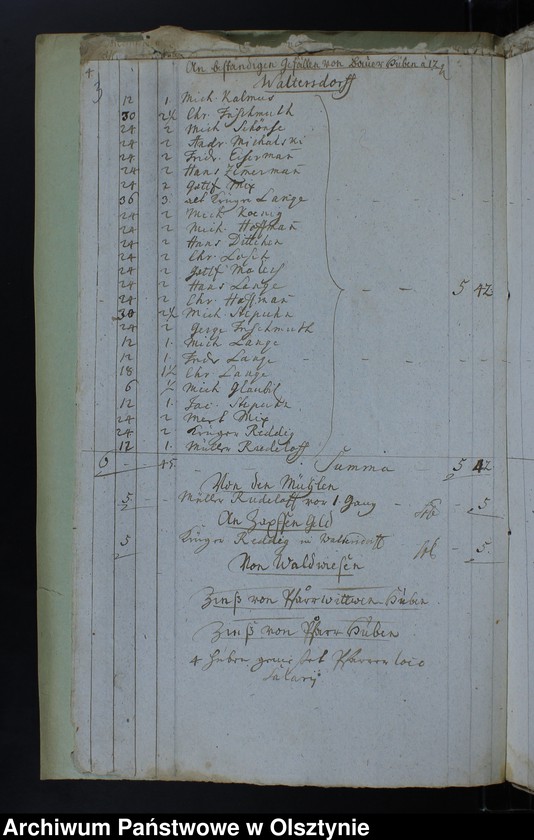 4
An beständigen Gefällen von Bauer Huben a 12
Waltersdorff
3
12 1 Mich. Kalmus
30 2½ Chr. Frischmuth
24 2 Mich Schönse
24 2 Andr. Michalski
24 2 Fridr. Eiserman̄
24 2 Hans Zimerman̄
24 2 Gottf Mix
36 3 Lange
24 2 Mich Koenig
24 2 Mich. Hoffman̄
24 2 Hans Dittchen
24 2 Chr. Losch
24 2 Gottf
24 2 Hans Lange
24 2 Chr. Hoffman̄
30 2½ Mich. Stepuhn
24 2 Frischmuth
12 1. Mich Lange
12 1 Fridr Lange
18 1½ Chr. Lange
6 ½ Mich Glaubitz
12 1. Jac. Stepuhn
24 2 Mix
24 2 Krüger Reddig
12 1. Müller Rudeloff
5 42
45 Summa 5 42
Von den Mühlen
5 Müller Rudeloff vor 1. Gang 5
An Zapffen Geld
5 Krüger Reddig in Waltersdorff 5.
Von Waldwiesen
Zinß von Pfarrwittwen Huben
Zinß von Pfarr Huben
4 Huben Pfarrer loco
Salarij
Archiwum Państwowe w Olsztynie